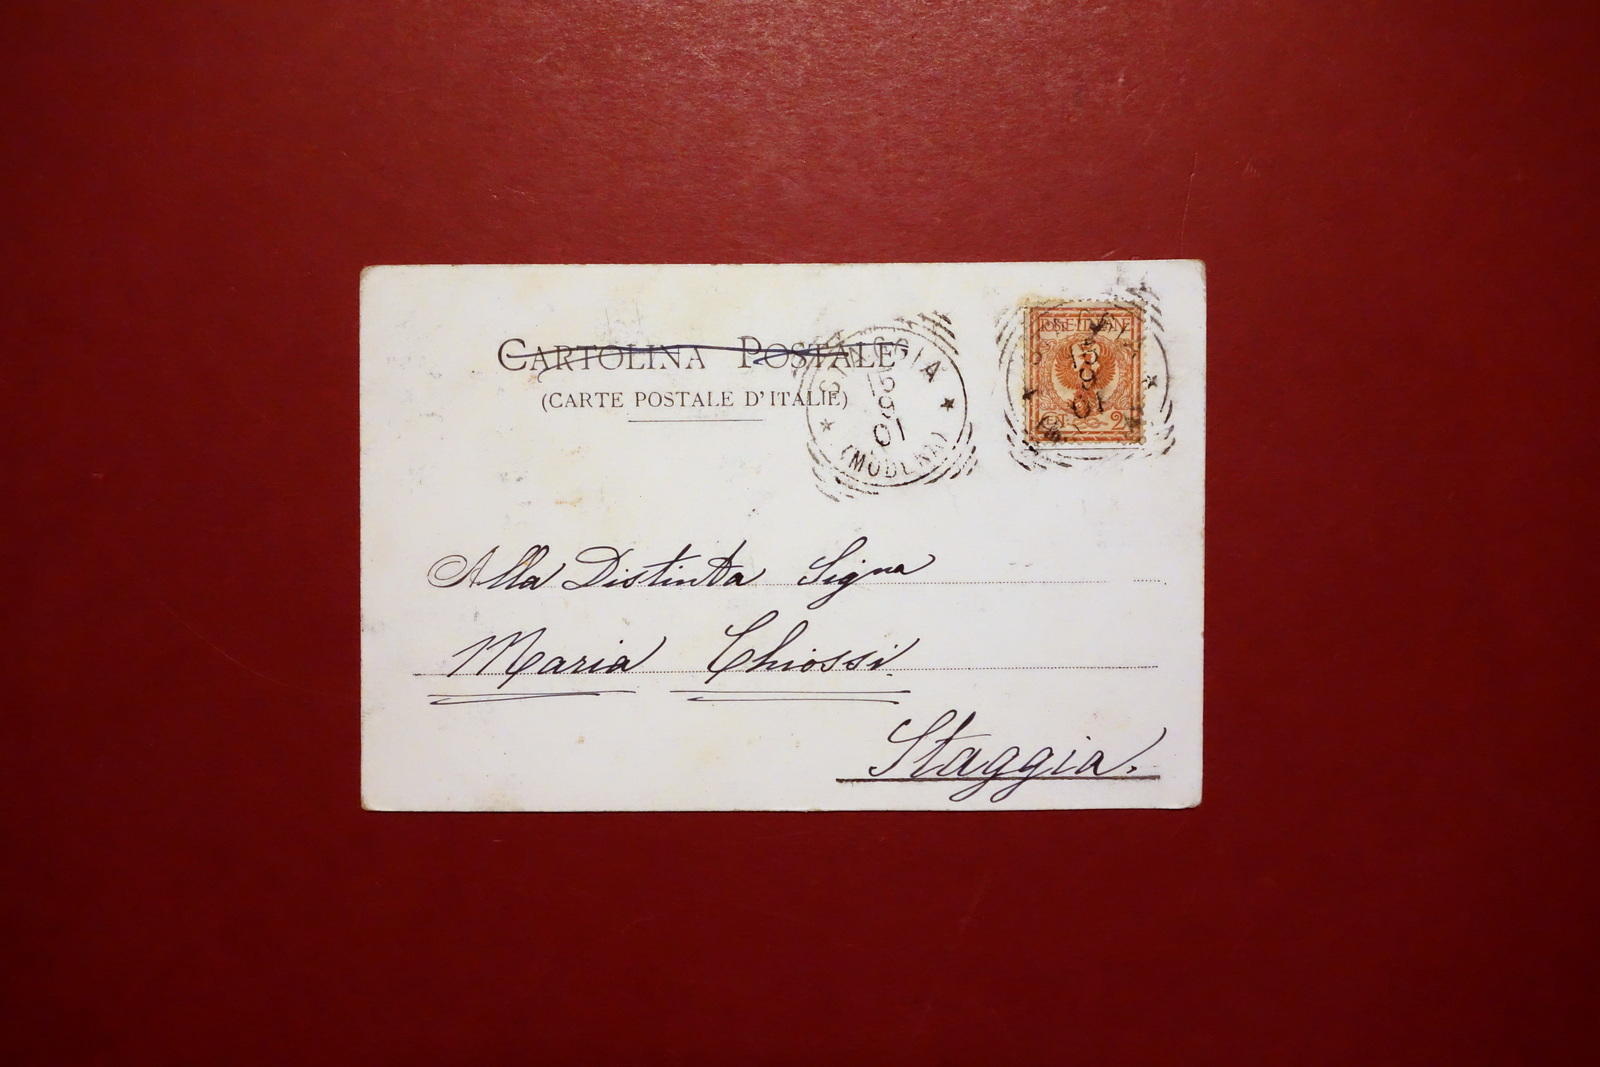 CARTOLINA POSTALE
(CARTE POSTALE D'ITALIE)
STAGGIA
15 9
01
(MODENA)
POSTE ITALIANE
15
9
01
2
Alla Distinta Signa
Maria Chiossi
Staggia.